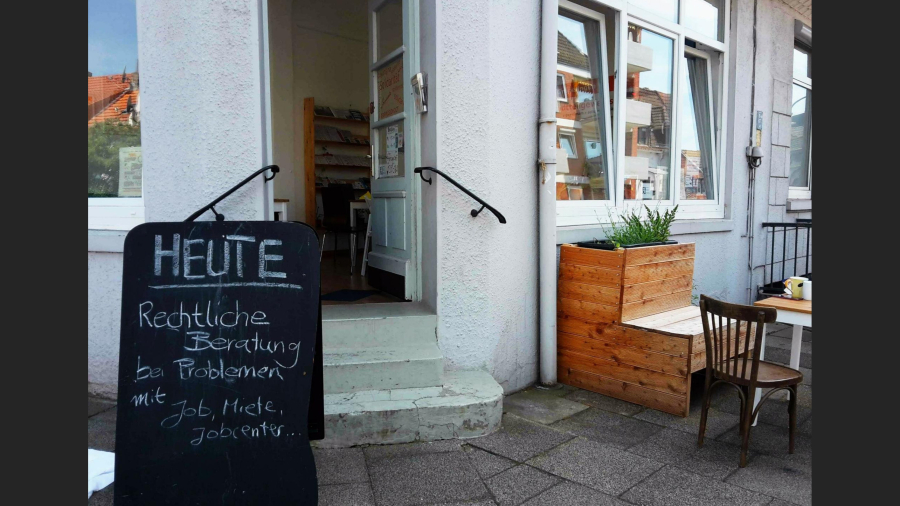 HEUTE
Rechtliche
Beratung
bei Problemen
mit
Job, Miete,
Jobcenter...